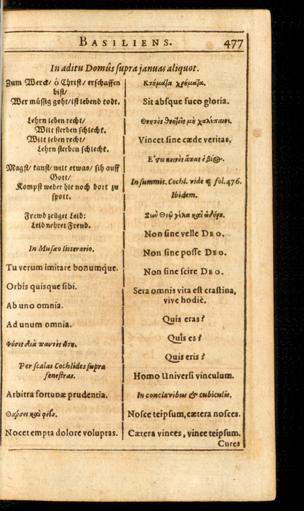 BASILIENS. 477
In aditu Domûs supra januas aliquot.
Zum Werck/ ô Christ/ erschaffen
bist/
Wer müssig geht/ ist lebend todt.
Lehrn leben recht/
Wilt sterben schlecht.
Wilt leben recht/
Lehrn sterben schlecht.
Magst/ kanst/ wilt etwas/ sih auff
Gott/
Kompst weder hie noch dort zu
spott.
Frembd zeitget Leid:
Leid nehret Freud.
In Musæo litterario.
Tu verum imitare bonumque.
Orbis quisque sibi.
Ab uno omnia.
Ad unum omnia.
Per scalas Cochlides supra
fenestras.
Arbitra fortunæ prudentia.
Nocet empta dolore voluptas.
Κτήματα χρήματα.
Sit absque fuco gloria.
Vincet sine cæde veritas.
In summis. Cochl. vide & fol. 476.
Ibidem.
Non sine velle DEO.
Non sine posse DEO.
Non sine scire DEO.
Sera omnis vita est crastina,
vive hodiè.
Quis eras?
Quis es?
Quis eris?
Homo Universi vinculum.
In conclavibus & cubiculis.
Nosce teipsum, cætera nosces.
Cætera vinces, vince teipsum.
Cures